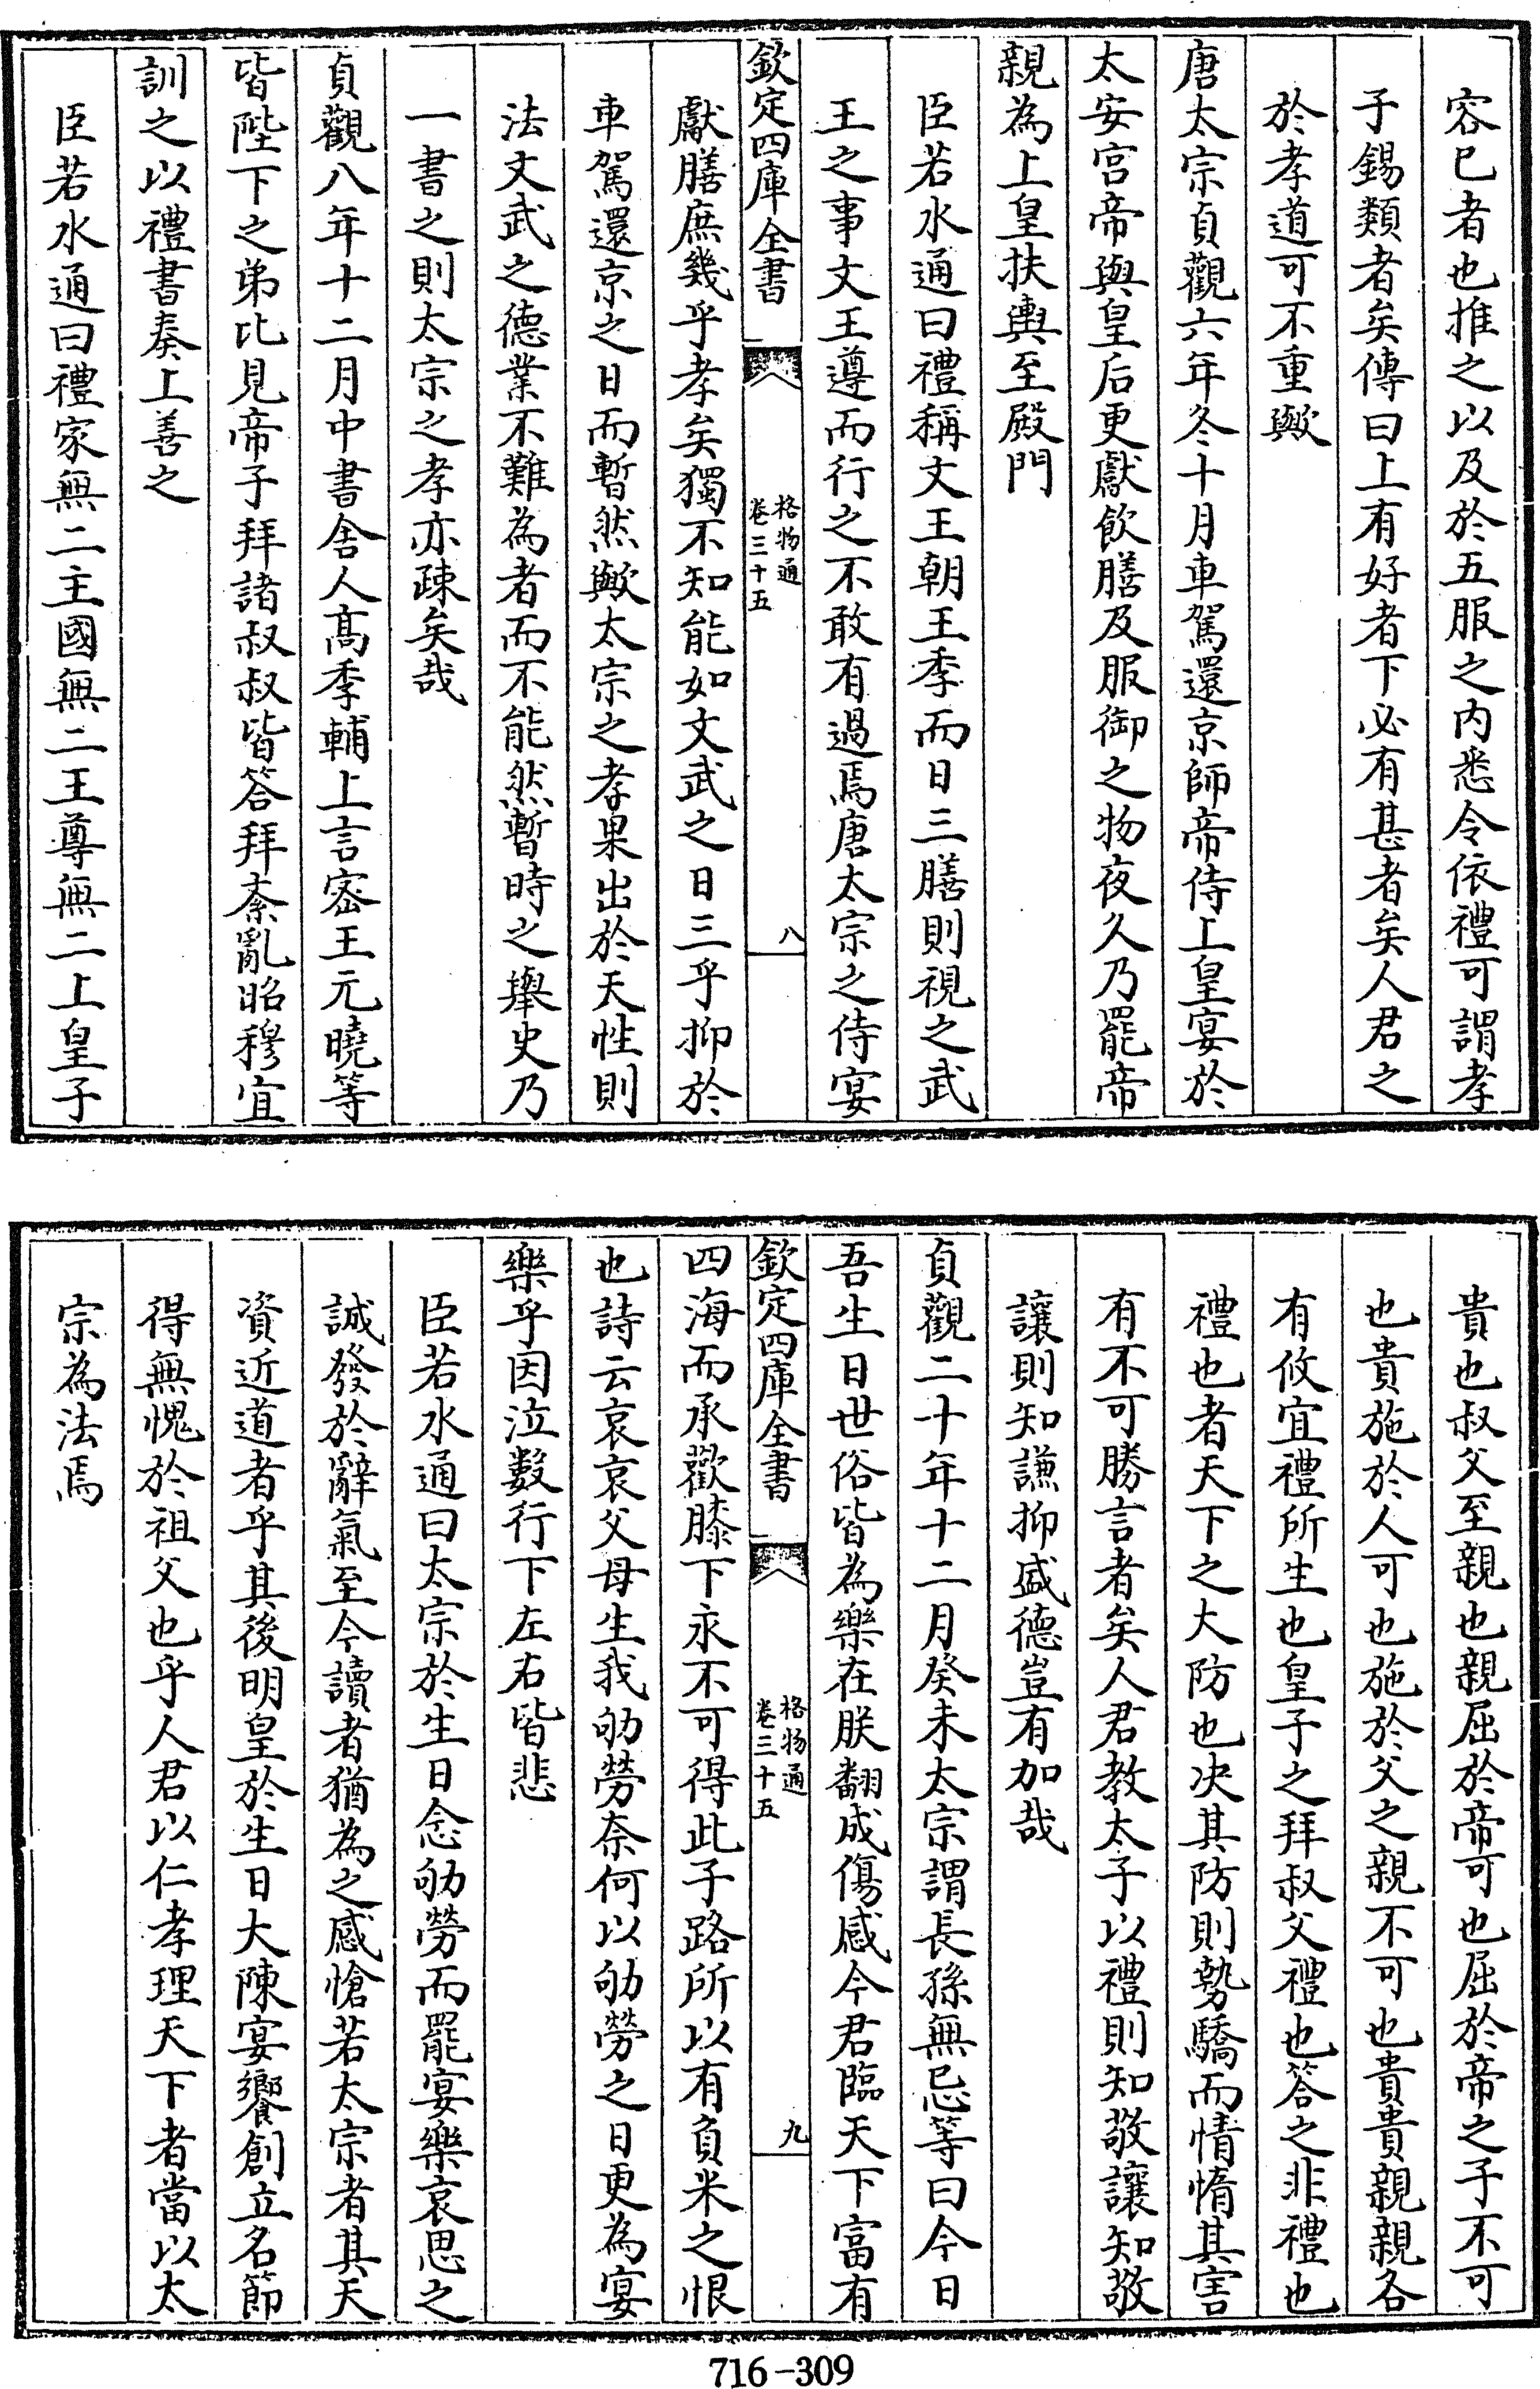 容已者也推之以及於五服之内悉令依禮可謂孝
子錫類者矣傳曰上有好者下必有甚者矣人君之
於孝道可不重歟
唐太宗貞觀六年冬十月車駕還京師帝侍上皇宴於
太安宫帝與皇后更獻飲膳及服御之物夜久乃罷帝
親為上皇扶輿至殿門
臣若水通曰禮稱文王朝王季而日三膳則視之武
王之事文王遵而行之不敢有過焉唐太宗之侍宴
欽定四庫全書
格物通
卷三十五
八
獻膳庶幾乎孝矣獨不知能如文武之日三乎抑於
車駕還京之日而暫然歟太宗之孝果出於天性則
法文武之德業不難為者而不能然暫時之舉史乃
一書之則太宗之孝亦疎矣哉
貞觀八年十二月中書舍人髙季輔上言宻王元曉等
皆陛下之弟比見帝子拜諸叔叔皆答拜紊亂昭穆宜
訓之以禮書奏上善之
臣若水通曰禮家無二主國無二王尊無二上皇子
貴也叔父至親也親屈於帝可也屈於帝之子不可
也貴施於人可也施於父之親不可也貴貴親親各
有攸宜禮所生也皇子之拜叔父禮也答之非禮也
禮也者天下之大防也决其防則勢驕而情惰其害
有不可勝言者矣人君教太子以禮則知敬讓知敬
讓則知謙抑盛德豈有加哉
貞觀二十年十二月癸未太宗謂長孫無忌等曰今日
吾生日世俗皆為樂在朕翻成傷感今君臨天下富有
欽定四庫全書
格物通
卷三十五
九
四海而承歡膝下永不可得此子路所以有負米之恨
也詩云哀哀父母生我劬勞奈何以劬勞之日更為宴
樂乎因泣數行下左右皆悲
臣若水通曰太宗於生日念劬勞而罷宴樂哀思之
誠發於辭氣至今讀者猶為之感愴若太宗者其天
資近道者乎其後明皇於生日大陳宴饗創立名節
得無愧於祖父也乎人君以仁孝理天下者當以太
宗為法焉
716-309